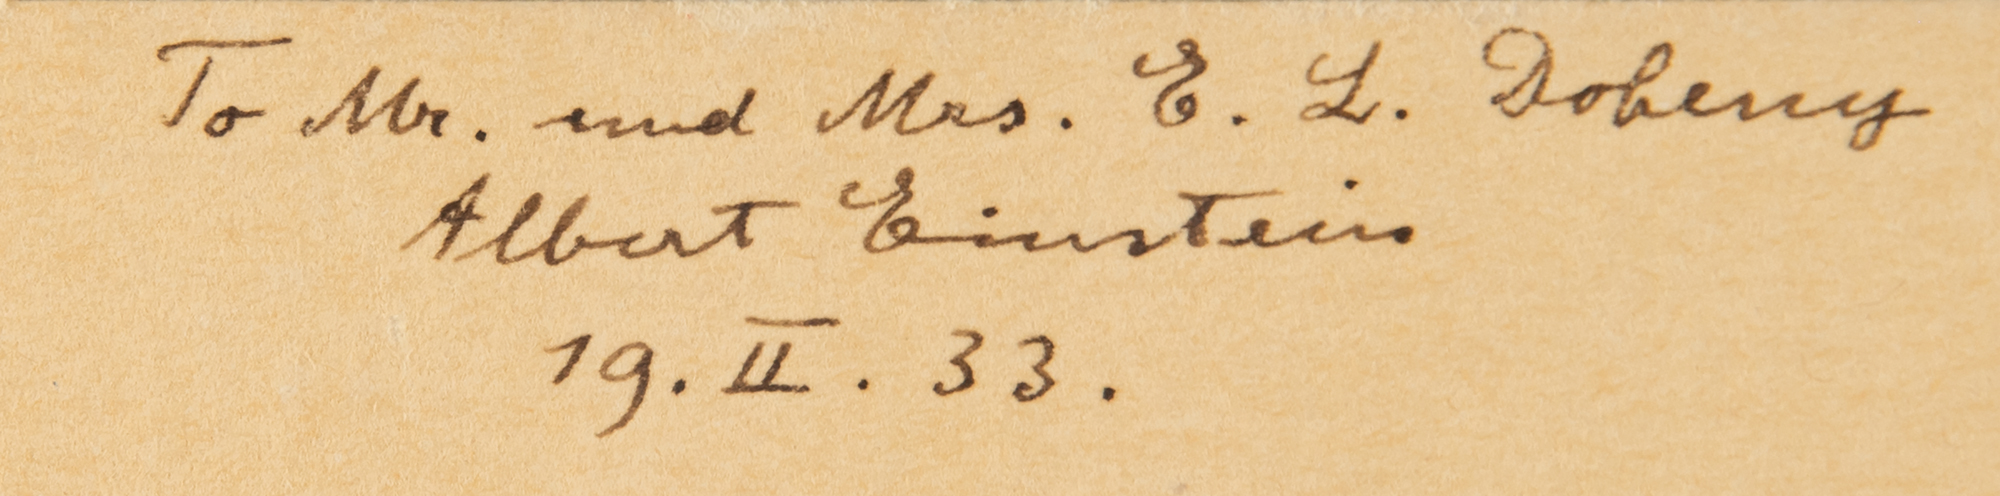 To Mr. und Mrs. E. L. Doheny
Albert Einstein
19. II. 33.